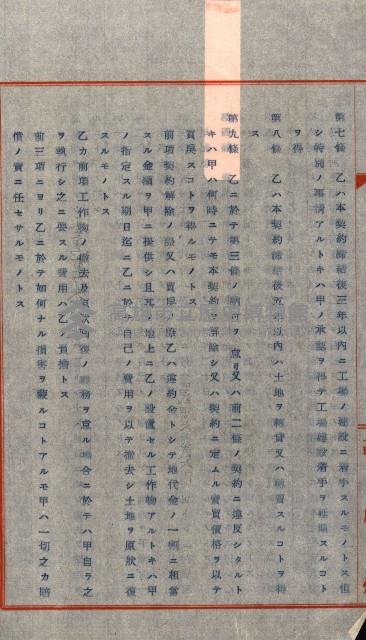 第七條　乙ハ本契約締結後三年以内ニ工場ノ建設ニ着手スルモノトス但
シ特別ノ事情アルトキハ甲ノ承認ヲ得テ工場建設着手ヲ延期スルコト
ヲ得
第八條　乙ハ本契約締結後五年以内ハ土地ヲ轉貸又ハ轉賣スルコトヲ得
ス
第九條　乙ニ於テ第三條ノ納付ヲ怠リ又ハ前二條ノ契約ニ違反シタルト
キハ甲ハ何時ニテモ本契約ヲ解除シ又ハ契約ニ定ムル賣買價格ヲ以テ
買戾スコトヲ得ルモノトス
前項契約解除ノ際又ハ買戾ノ際乙ハ違約金トシテ地代金ノ一割ニ相當
スル金額ヲ甲ニ提供シ且其ノ地上ニ乙ノ設置セル工作物アルトキハ甲
ノ指定スル期日迄ニ乙ニ於テ自己ノ費用ヲ以テ撤去シ土地ヲ原狀ニ復
スルモノトス
乙カ前項工作物ノ撤去及原狀回復ノ義務ヲ怠ル場合ニ於テハ甲自ラ之
ヲ執行シ之ニ要スル費用ハ乙ノ負擔トス
前三項ニヨリ乙ニ於テ如何ナル損害ヲ蒙ルコトアルモ甲ハ一切之カ賠
償ノ責ニ任セサルモノトス